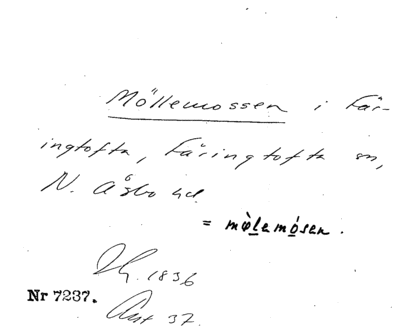 Möllemossen i Fär-
ingtofta, Färingtofta sn,
N. Åsbo hd.
= mø̀lemósen.
1836
Nr 7237.
37.